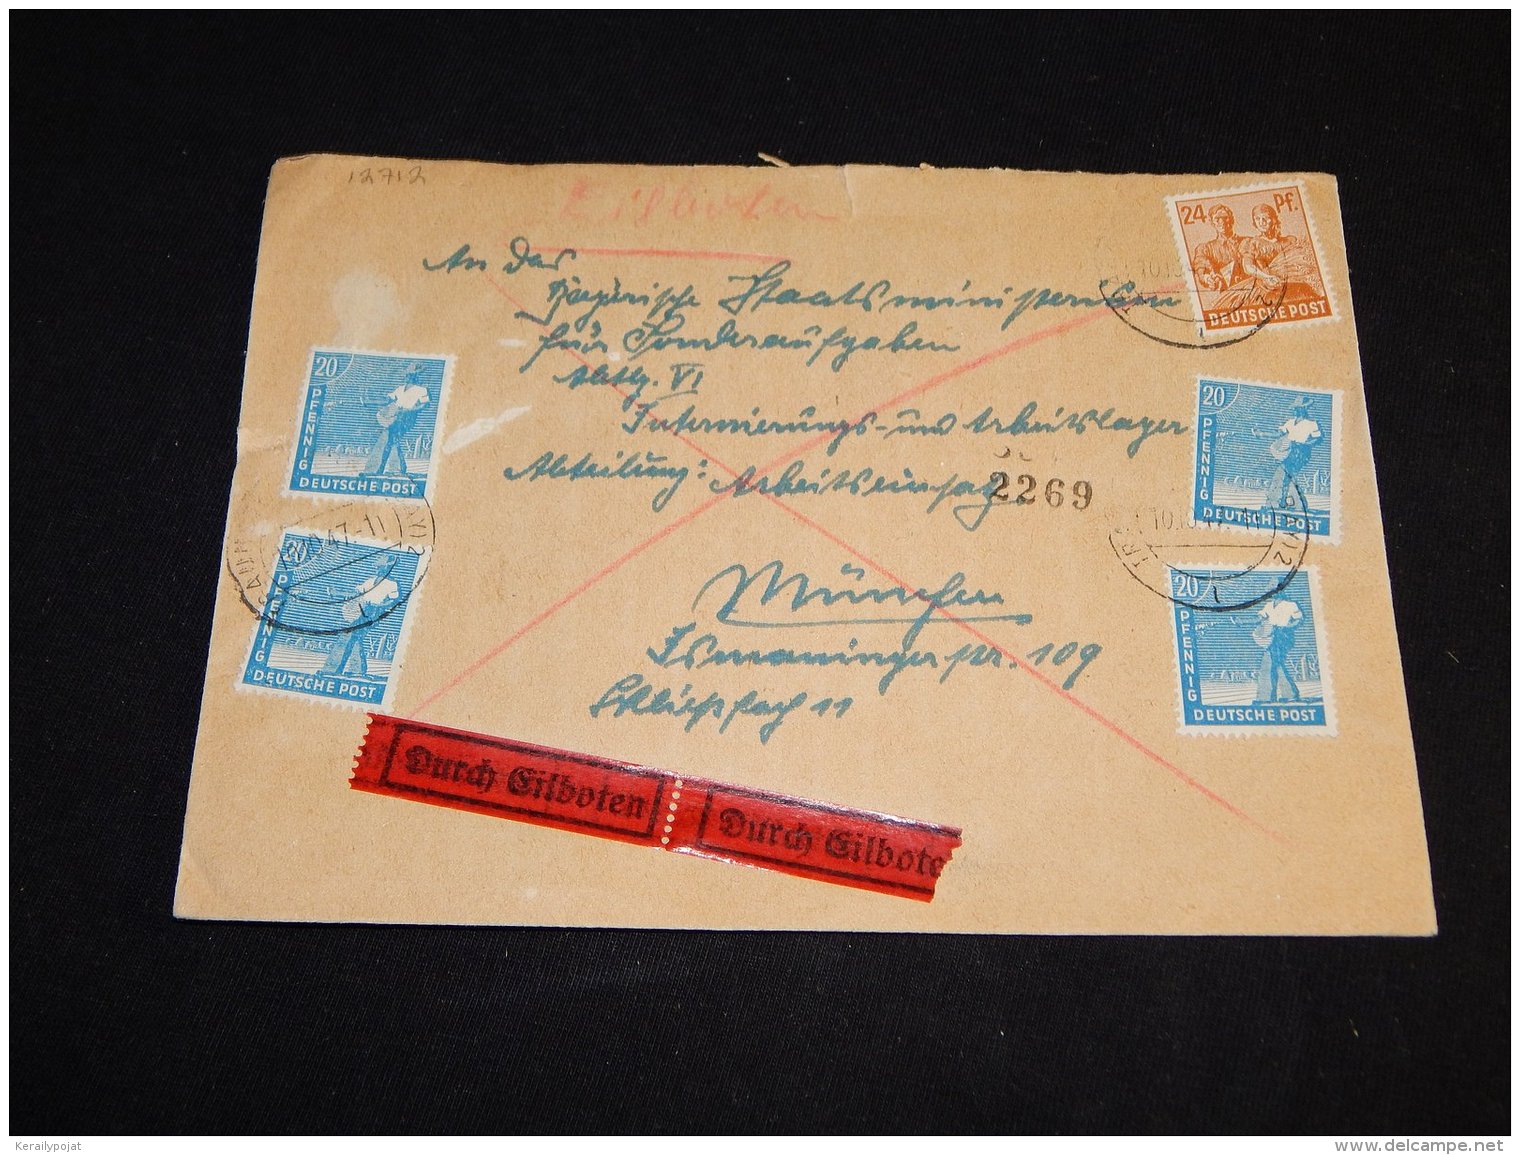 12712
Eilboten
An das
Bayerische Staatsministerium
für Sonderaufgaben
Abtlg. VI
Internierungs- und Arbeitslager
Abteilung: Arbeitseinsatz
2269
München
Ismaningerstr. 109
Schließfach 11
24 Pf.
DEUTSCHE POST
20
PFENNIG
DEUTSCHE POST
20
PFENNIG
DEUTSCHE POST
20
PFENNIG
DEUTSCHE POST
20
PFENNIG
DEUTSCHE POST
10.10.47.-11
Durch Eilboten
Durch Eilbote
Kerailypojat
www.delcampe.net